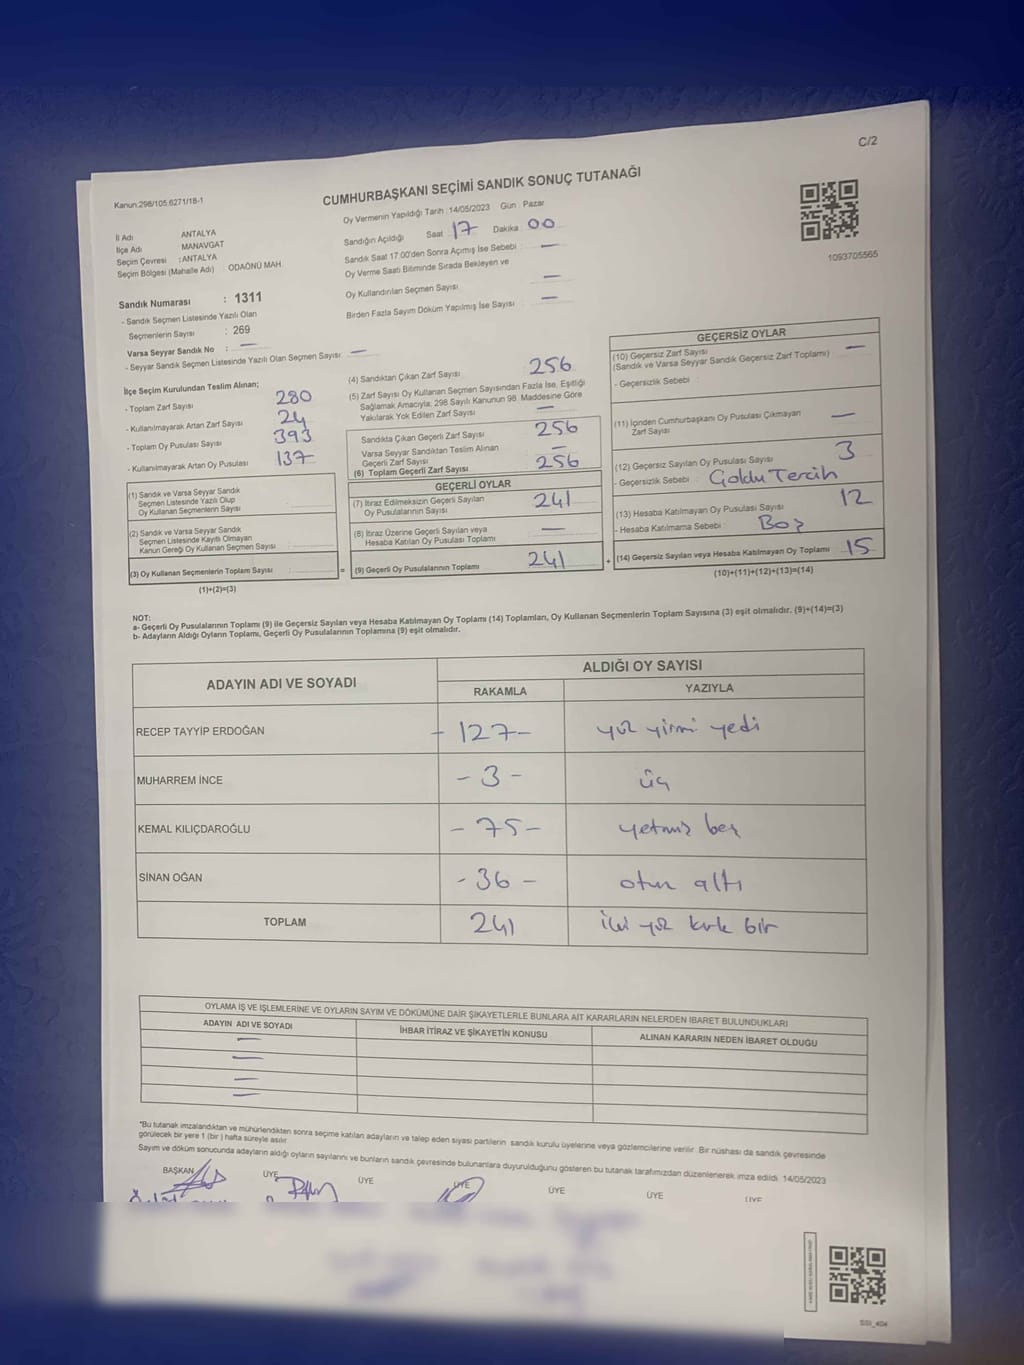 C/2
Kanun.298/105.6271/18-1
CUMHURBAŞKANI SEÇİMİ SANDIK SONUÇ TUTANAĞI
Oy Vermenin Yapıldığı Tarih : 14/05/2023 Gün : Pazar
İl Adı ANTALYA
İlçe Adı : MANAVGAT
Seçim Çevresi : ANTALYA
Seçim Bölgesi (Mahalle Adı) : ODAÖNÜ MAH.
Sandığın Açıldığı Saat 17 Dakika 00
Sandık Saat 17:00'den Sonra Açımış İse Sebebi : —
Oy Verme Saati Bitiminde Sırada Bekleyen ve
Oy Kullandırılan Seçmen Sayısı —
Birden Fazla Sayım Döküm Yapılmış İse Sayısı —
1093705565
Sandık Numarası : 1311
- Sandık Seçmen Listesinde Yazılı Olan
Seçmenlerin Sayısı : 269
Varsa Seyyar Sandık No : —
- Seyyar Sandık Seçmen Listesinde Yazılı Olan Seçmen Sayısı: —
İlçe Seçim Kurulundan Teslim Alınan;
- Toplam Zarf Sayısı 280
- Kullanılmayarak Artan Zarf Sayısı 24
- Toplam Oy Pusulası Sayısı 393
- Kullanılmayarak Artan Oy Pusulası 137
(1) Sandık ve Varsa Seyyar Sandık
Seçmen Listesinde Yazılı Olup
Oy Kullanan Seçmenlerin Sayısı
(2) Sandık ve Varsa Seyyar Sandık
Seçmen Listesinde Kayıtlı Olmayan
Kanun Gereği Oy Kullanan Seçmen Sayısı :
(3) Oy Kullanan Seçmenlerin Toplam Sayısı
(1)+(2)=(3)
(4) Sandıktan Çıkan Zarf Sayısı 256
(5) Zarf Sayısı Oy Kullanan Seçmen Sayısından Fazla İse, Eşitliği
Sağlamak Amacıyla; 298 Sayılı Kanunun 98. Maddesine Göre
Yakılarak Yok Edilen Zarf Sayısı —
Sandıkta Çıkan Geçerli Zarf Sayısı 256
Varsa Seyyar Sandıktan Teslim Alınan
Geçerli Zarf Sayısı —
(6) Toplam Geçerli Zarf Sayısı 256
GEÇERLİ OYLAR
(7) İtiraz Edilmeksizin Geçerli Sayılan
Oy Pusulalarının Sayısı 241
(8) İtiraz Üzerine Geçerli Sayılan veya
Hesaba Katılan Oy Pusulası Toplamı —
= (9) Geçerli Oy Pusulalarının Toplamı 241
GEÇERSİZ OYLAR
(10) Geçersiz Zarf Sayısı —
(Sandık ve Varsa Seyyar Sandık Geçersiz Zarf Toplamı)
- Geçersizlik Sebebi :
(11) İçinden Cumhurbaşkanı Oy Pusulası Çıkmayan
Zarf Sayısı —
(12) Geçersiz Sayılan Oy Pusulası Sayısı 3
- Geçersizlik Sebebi : Çoklu Tercih
(13) Hesaba Katılmayan Oy Pusulası Sayısı 12
- Hesaba Katılmama Sebebi : Boş
+ (14) Geçersiz Sayılan veya Hesaba Katılmayan Oy Toplamı 15
(10)+(11)+(12)+(13)=(14)
NOT:
a- Geçerli Oy Pusulalarının Toplamı (9) ile Geçersiz Sayılan veya Hesaba Katılmayan Oy Toplamı (14) Toplamları, Oy Kullanan Seçmenlerin Toplam Sayısına (3) eşit olmalıdır. (9)+(14)=(3)
b- Adayların Aldığı Oyların Toplamı, Geçerli Oy Pusulalarının Toplamına (9) eşit olmalıdır.
ADAYIN ADI VE SOYADI ALDIĞI OY SAYISI
RAKAMLA YAZIYLA
RECEP TAYYİP ERDOĞAN - 127 - yüz yirmi yedi
MUHARREM İNCE - 3 - üç
KEMAL KILIÇDAROĞLU - 75 - yetmiş beş
SİNAN OĞAN - 36 - otuz altı
TOPLAM 241 iki yüz kırk bir
OYLAMA İŞ VE İŞLEMLERİNE VE OYLARIN SAYIM VE DÖKÜMÜNE DAİR ŞİKAYETLERLE BUNLARA AİT KARARLARIN NELERDEN İBARET BULUNDUKLARI
ADAYIN ADI VE SOYADI İHBAR İTİRAZ VE ŞİKAYETİN KONUSU ALINAN KARARIN NEDEN İBARET OLDUĞU
—
—
—
—
*Bu tutanak imzalandıktan ve mühürlendikten sonra seçime katılan adayların ve talep eden siyasi partilerin sandık kurulu üyelerine veya gözlemcilerine verilir. Bir nüshası da sandık çevresinde
görülecek bir yere 1 (bir) hafta süreyle asılır.
Sayım ve döküm sonucunda adayların aldığı oyların sayılarını ve bunların sandık çevresinde bulunanlara duyurulduğunu gösteren bu tutanak tarafımızdan düzenlenerek imza edildi. 14/05/2023
BAŞKAN ÜYE ÜYE ÜYE ÜYE ÜYE ÜYE
SSI_404